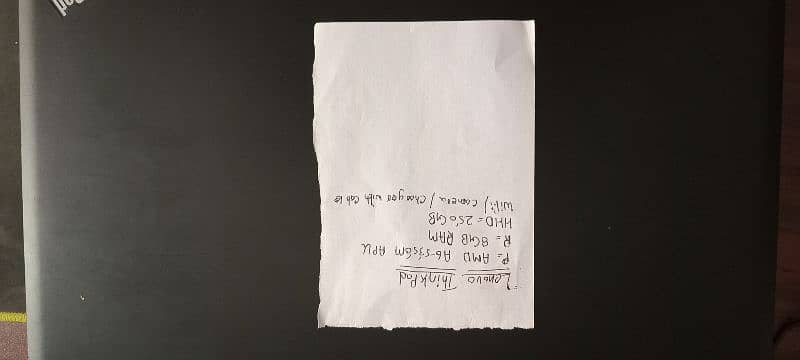 Lenovo ThinkPad
P= AMD A6-5356M APU
R= 8GB RAM
HHD= 250GB
Wifi/ camera/ Charger with Cable